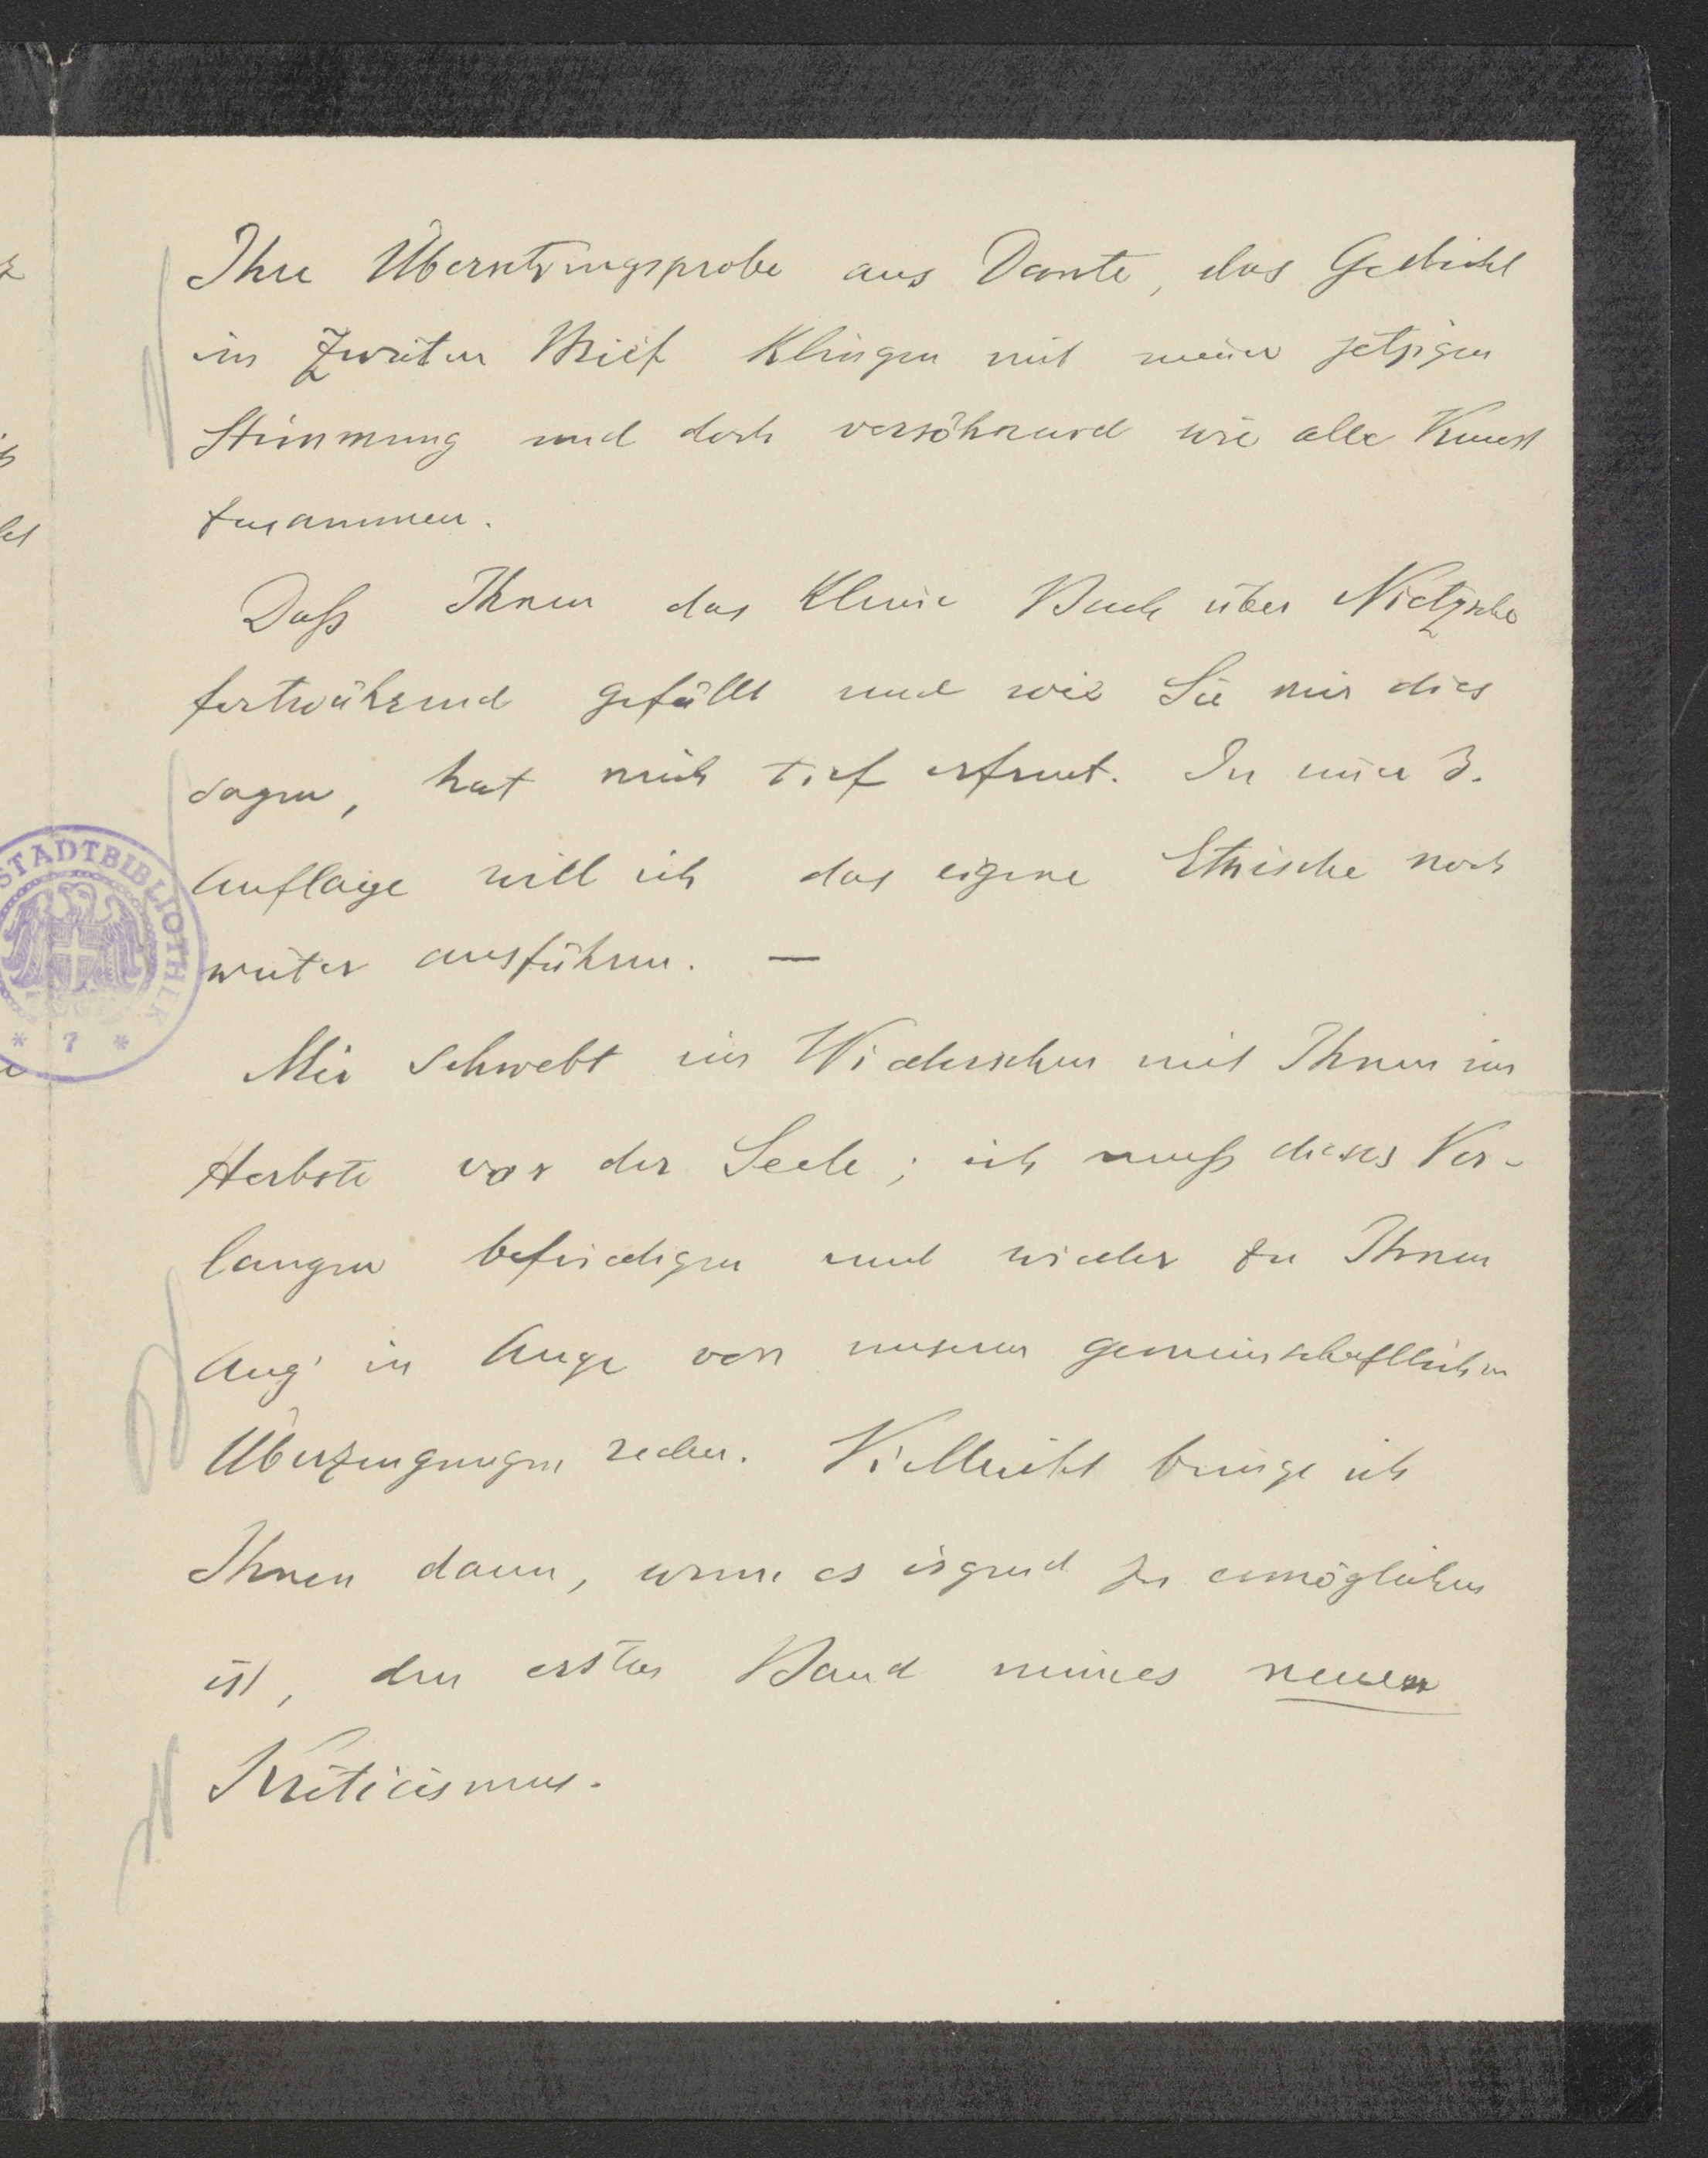 Ihre Übersetzungsprobe aus Dante, das Gedicht
im zweiten Brief klingen mit meiner jetzigen
Stimmung und doch versöhnend wie alle Kunst
zusammen.
Daß Ihnen das kleine Buch über Nietzsche
fortwährend gefällt und wie Sie mir dies
sagen, hat mich tief erfreut. In einer 3.
Auflage will ich das eigene Ethische noch
weiter ausführen. —
Mir schwebt ein Wiedersehen mit Ihnen im
Herbste vor der Seele; ich muß dieses Ver-
langen befriedigen und wieder zu Ihnen
Aug' in Auge von unseren gemeinschaftlichen
Überzeugungen reden. Vielleicht bringe ich
Ihnen dann, wenn es irgend zu ermöglichen
ist, den ersten Band meines neuen
Kriticismus.
STADTBIBLIOTHEK
* 7 *